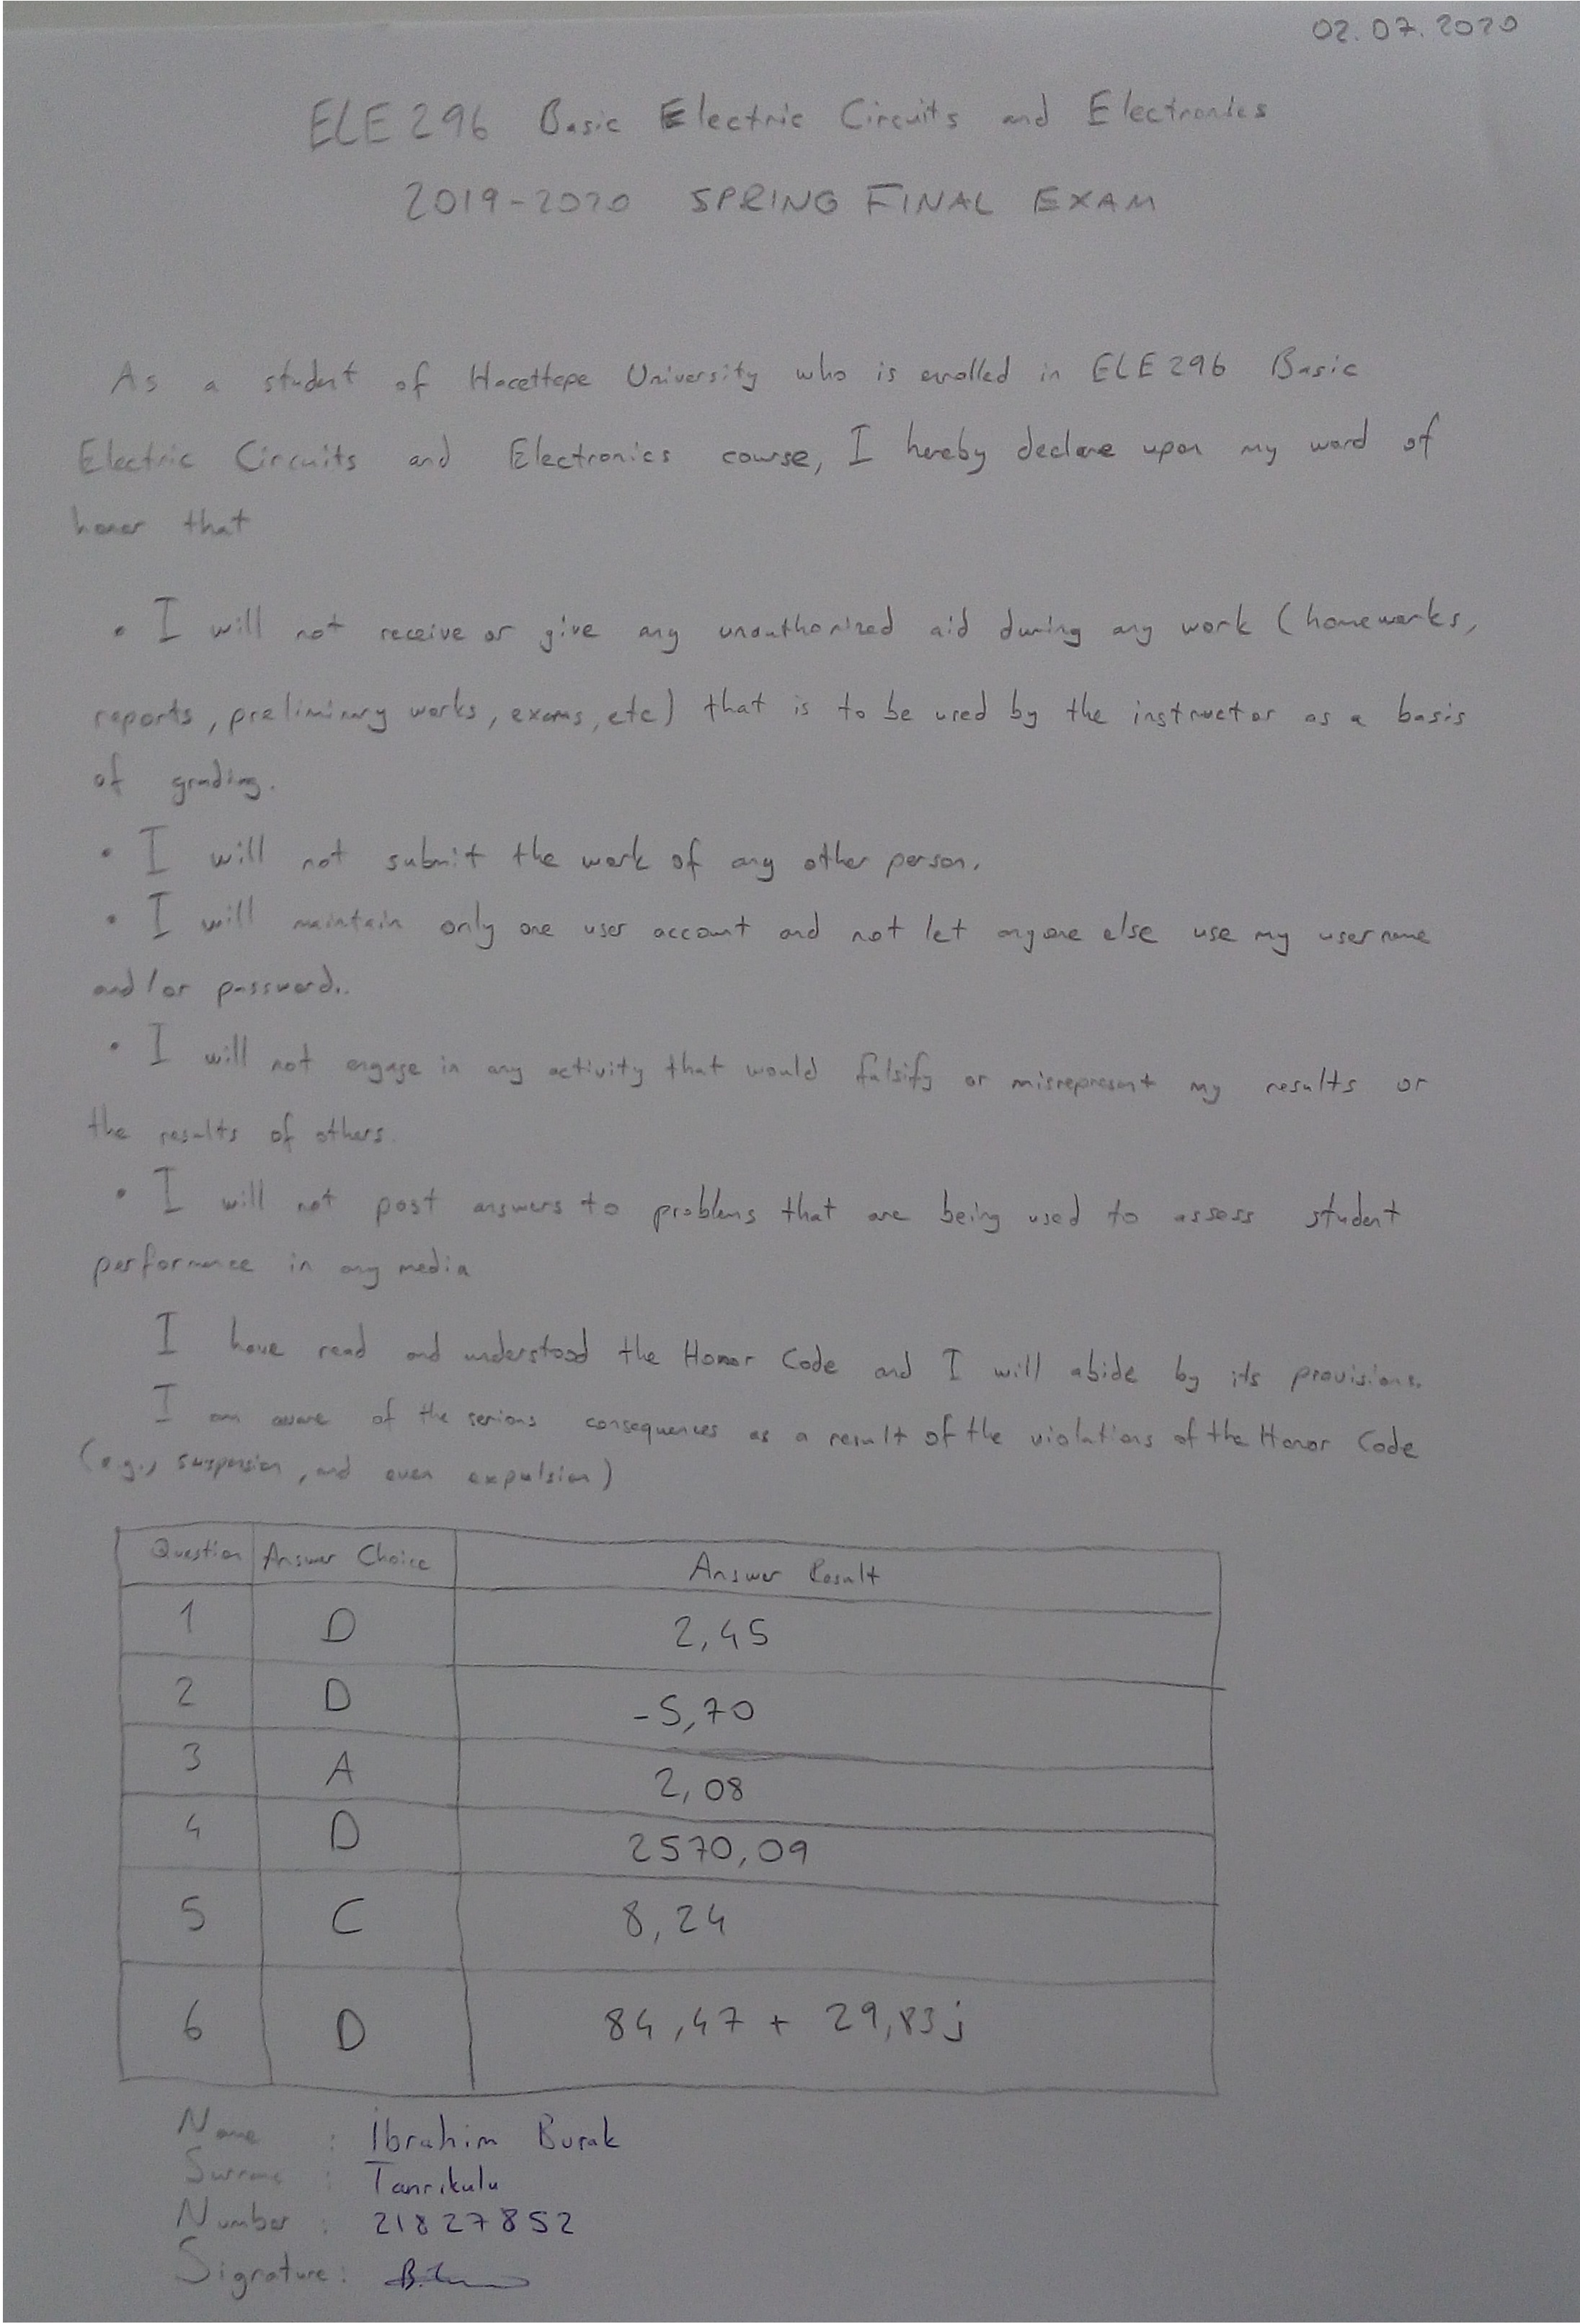 02.07.2020
ELE296 Basic Electric Circuits and Electronics
2019-2020 SPRING FINAL EXAM
As a student of Hacettepe University who is enrolled in ELE296 Basic
Electric Circuits and Electronics course, I hereby declare upon my word of
honor that
• I will not receive or give any unauthorized aid during any work (homeworks,
reports, preliminary works, exams, etc) that is to be used by the instructor as a basis
of grading.
• I will not submit the work of any other person.
• I will maintain only one user account and not let anyone else use my username
and/or password..
• I will not engage in any activity that would falsify or misrepresent my results or
the results of others.
• I will not post answers to problems that are being used to assess student
performance in any media
I have read and understood the Honor Code and I will abide by its provisions.
I am aware of the serious consequences as a result of the violations of the Honor Code
(e.g., suspension, and even expulsion)
Question Answer Choice Answer Result
1 D 2,45
2 D -5,70
3 A 2,08
4 D 2570,09
5 C 8,24
6 D 84,47 + 29,83j
Name : İbrahim Burak
Surname : Tanrikulu
Number : 21827852
Signature :